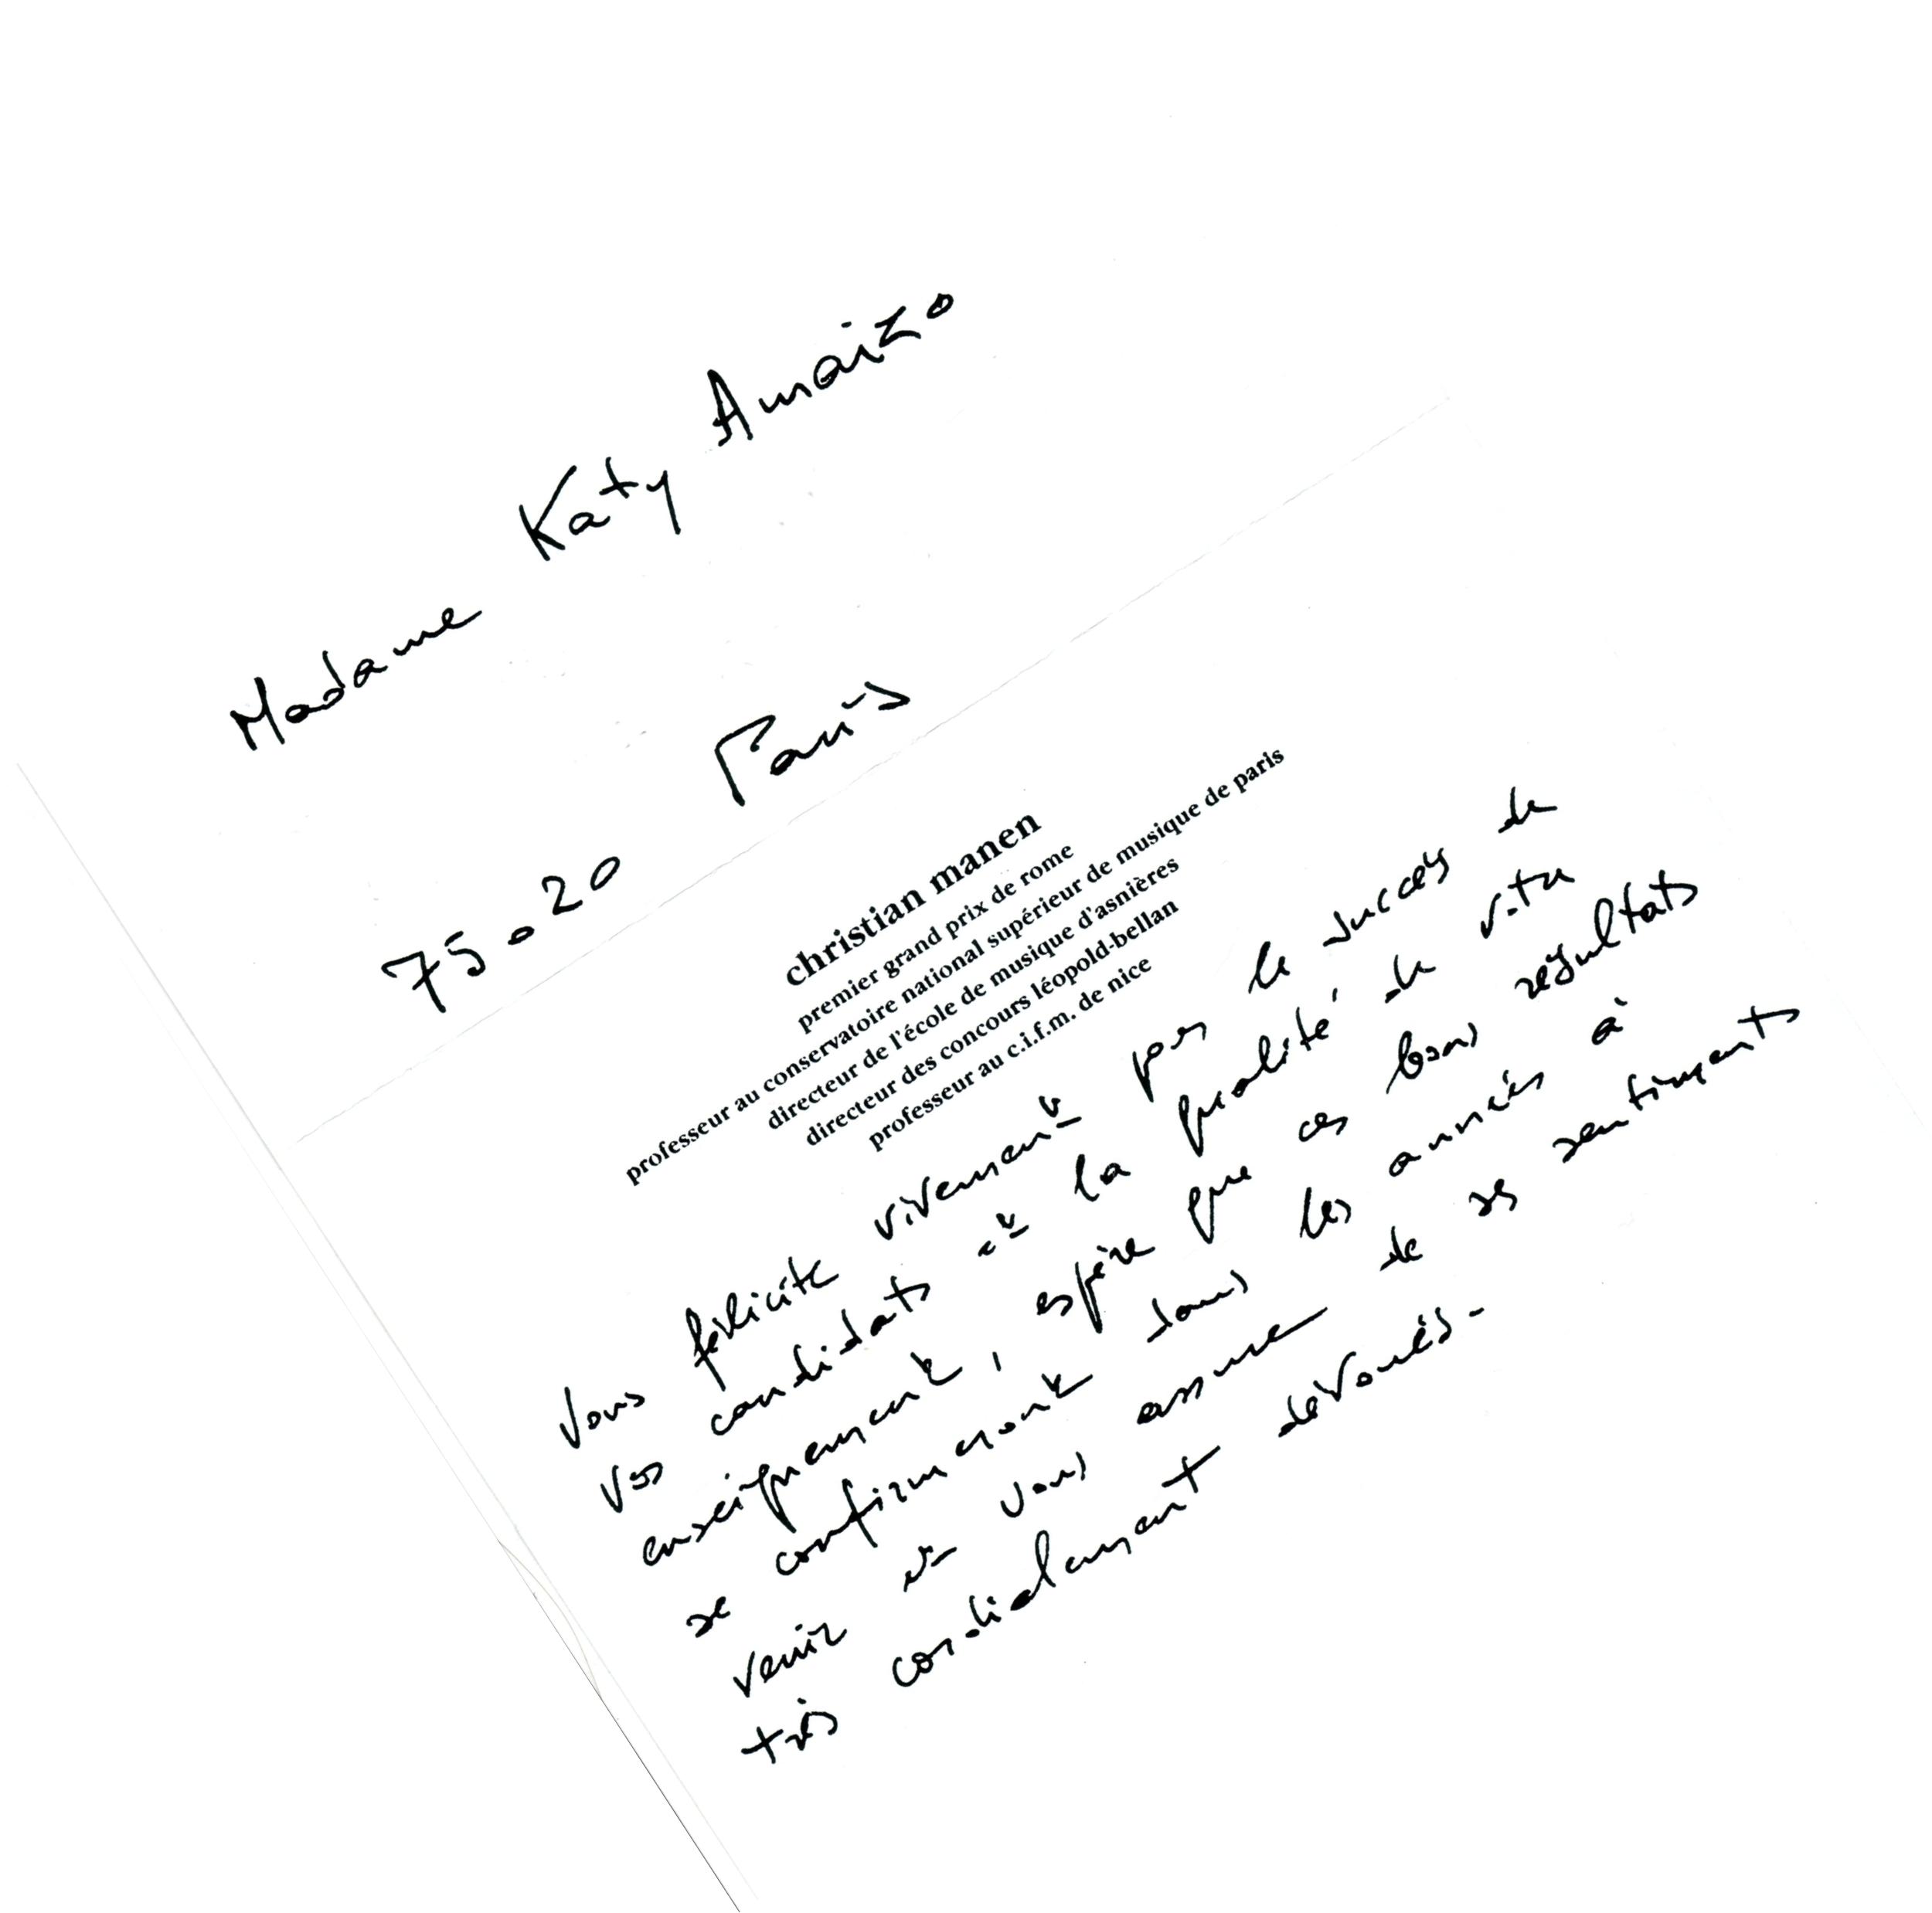 Madame Katy Amaizo
75-20 Paris
christian manen
premier grand prix de rome
professeur au conservatoire national supérieur de musique de paris
directeur de l'école de musique d'asnières
directeur des concours léopold-bellan
professeur au c.i.f.m. de nice
Vous félicite vivement pour le succès de
vos candidats et la qualité de votre
enseignement, espère que ces bons résultats
se confirmeront dans les années à
venir et vous assure de ses sentiments
très cordialement dévoués.